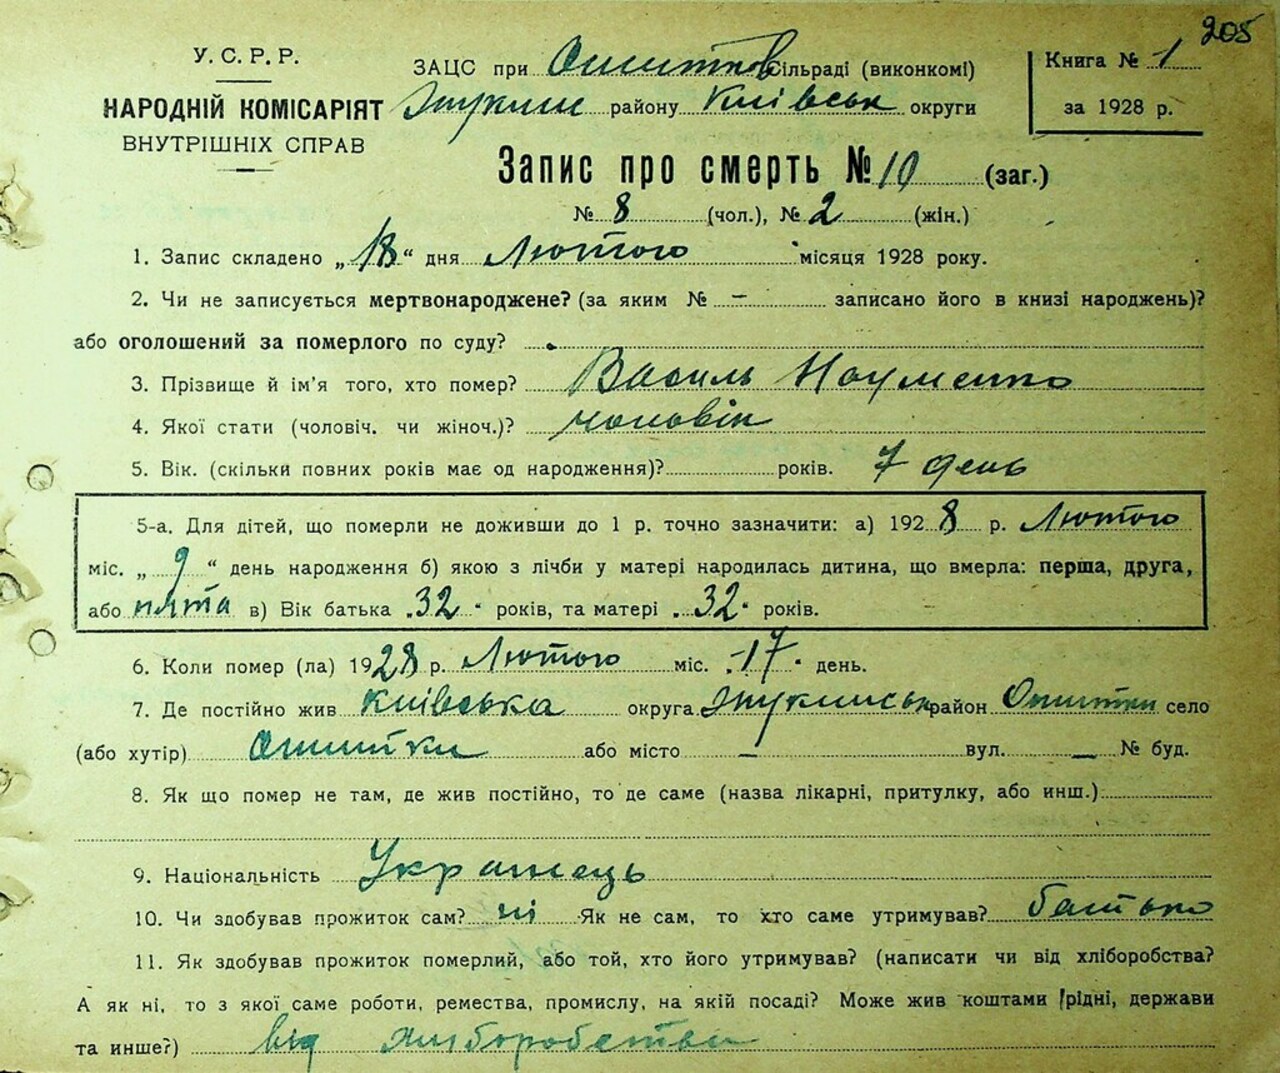 205
У. С. Р. Р.
НАРОДНІЙ КОМІСАРІЯТ
ВНУТРІШНІХ СПРАВ
ЗАЦС при Сільраді (виконкомі)
району Київськ округи
Книга № 1
за 1928 р.
Запис про смерть № 10 (заг.)
№ 8 (чол.), № 2 (жін.)
1. Запис складено „18“ дня Лютого місяця 1928 року.
2. Чи не записується мертвонароджене? (за яким № – записано його в книзі народжень)?
або оголошений за померлого по суду?
3. Прізвище й ім'я того, хто помер? Василь Науменко
4. Якої стати (чоловіч. чи жіноч.)? чоловік
5. Вік. (скільки повних років має од народження)? років. 7 день
5-а. Для дітей, що померли не доживши до 1 р. точно зазначити: а) 1928 р. Лютого
міс. „9“ день народження б) якою з лічби у матері народилась дитина, що вмерла: перша, друга,
або пята в) Вік батька 32 років, та матері 32 років.
6. Коли помер (ла) 1928 р. Лютого міс. 17 день.
7. Де постійно жив Київська округа район село
(або хутір) або місто – вул. – № буд.
8. Як що помер не там, де жив постійно, то де саме (назва лікарні, притулку, або инш.)
9. Національність Украінець
10. Чи здобував прожиток сам? ні Як не сам, то хто саме утримував? батько
11. Як здобував прожиток померлий, або той, хто його утримував? (написати чи від хліборобства?
А як ні, то з якої саме роботи, ремества, промислу, на якій посаді? Може жив коштами рідні, держави
та инше?) від хліборобства